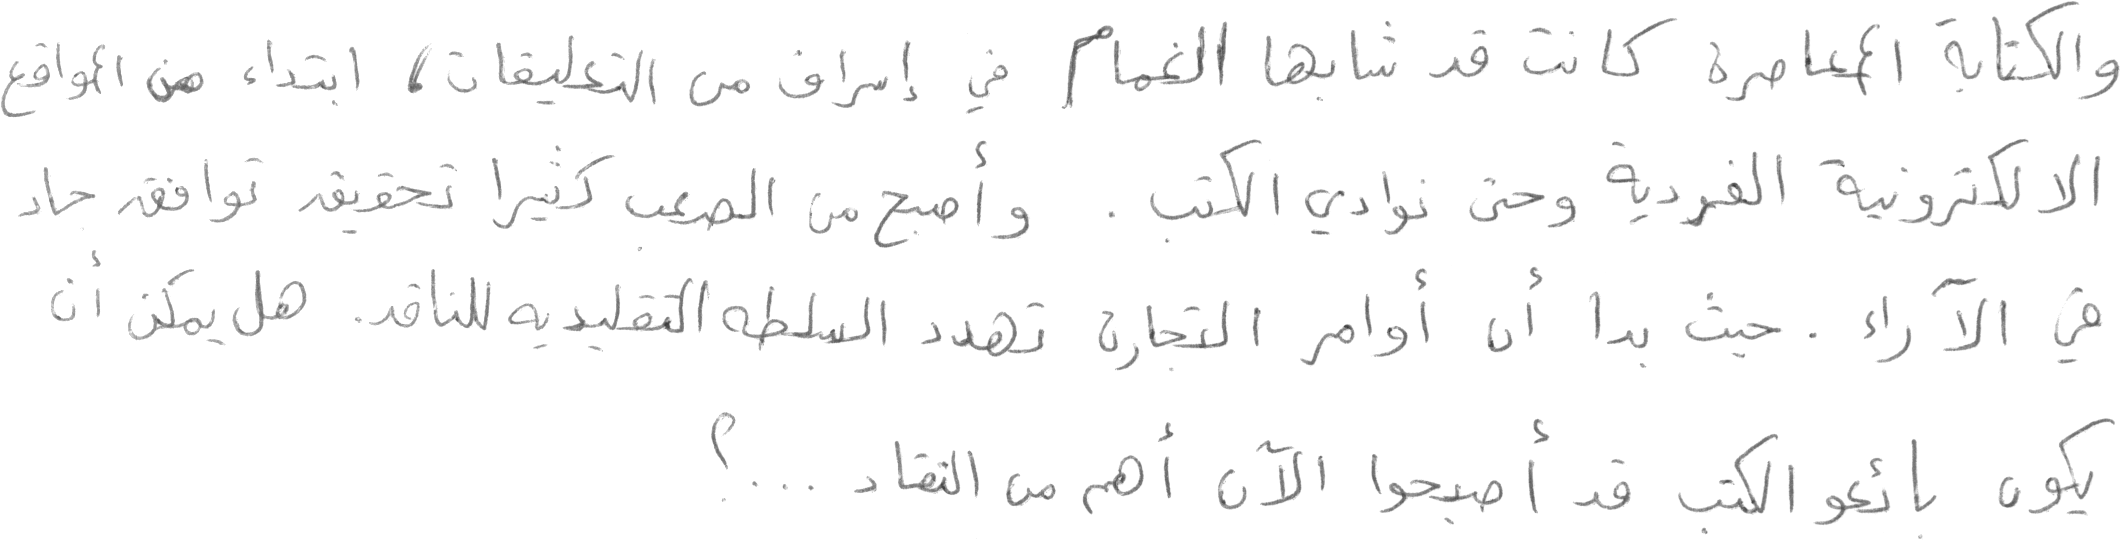 والكتابة المعاصرة كانت قد شابها الغمام في إسراف من التعليقات، ابتداء من المواقع
الالكترونية الفردية وحتى نوادي الكتب. وأصبح من الصعب كثيرا تحقيق توافق جاد
في الآراء. حيث بدا أن أوامر التجارة تهدد السلطه التقليديه للناقد. هل يمكن أن
يكون بائعو الكتب قد أصبحوا الآن أهم من النقاد ...؟